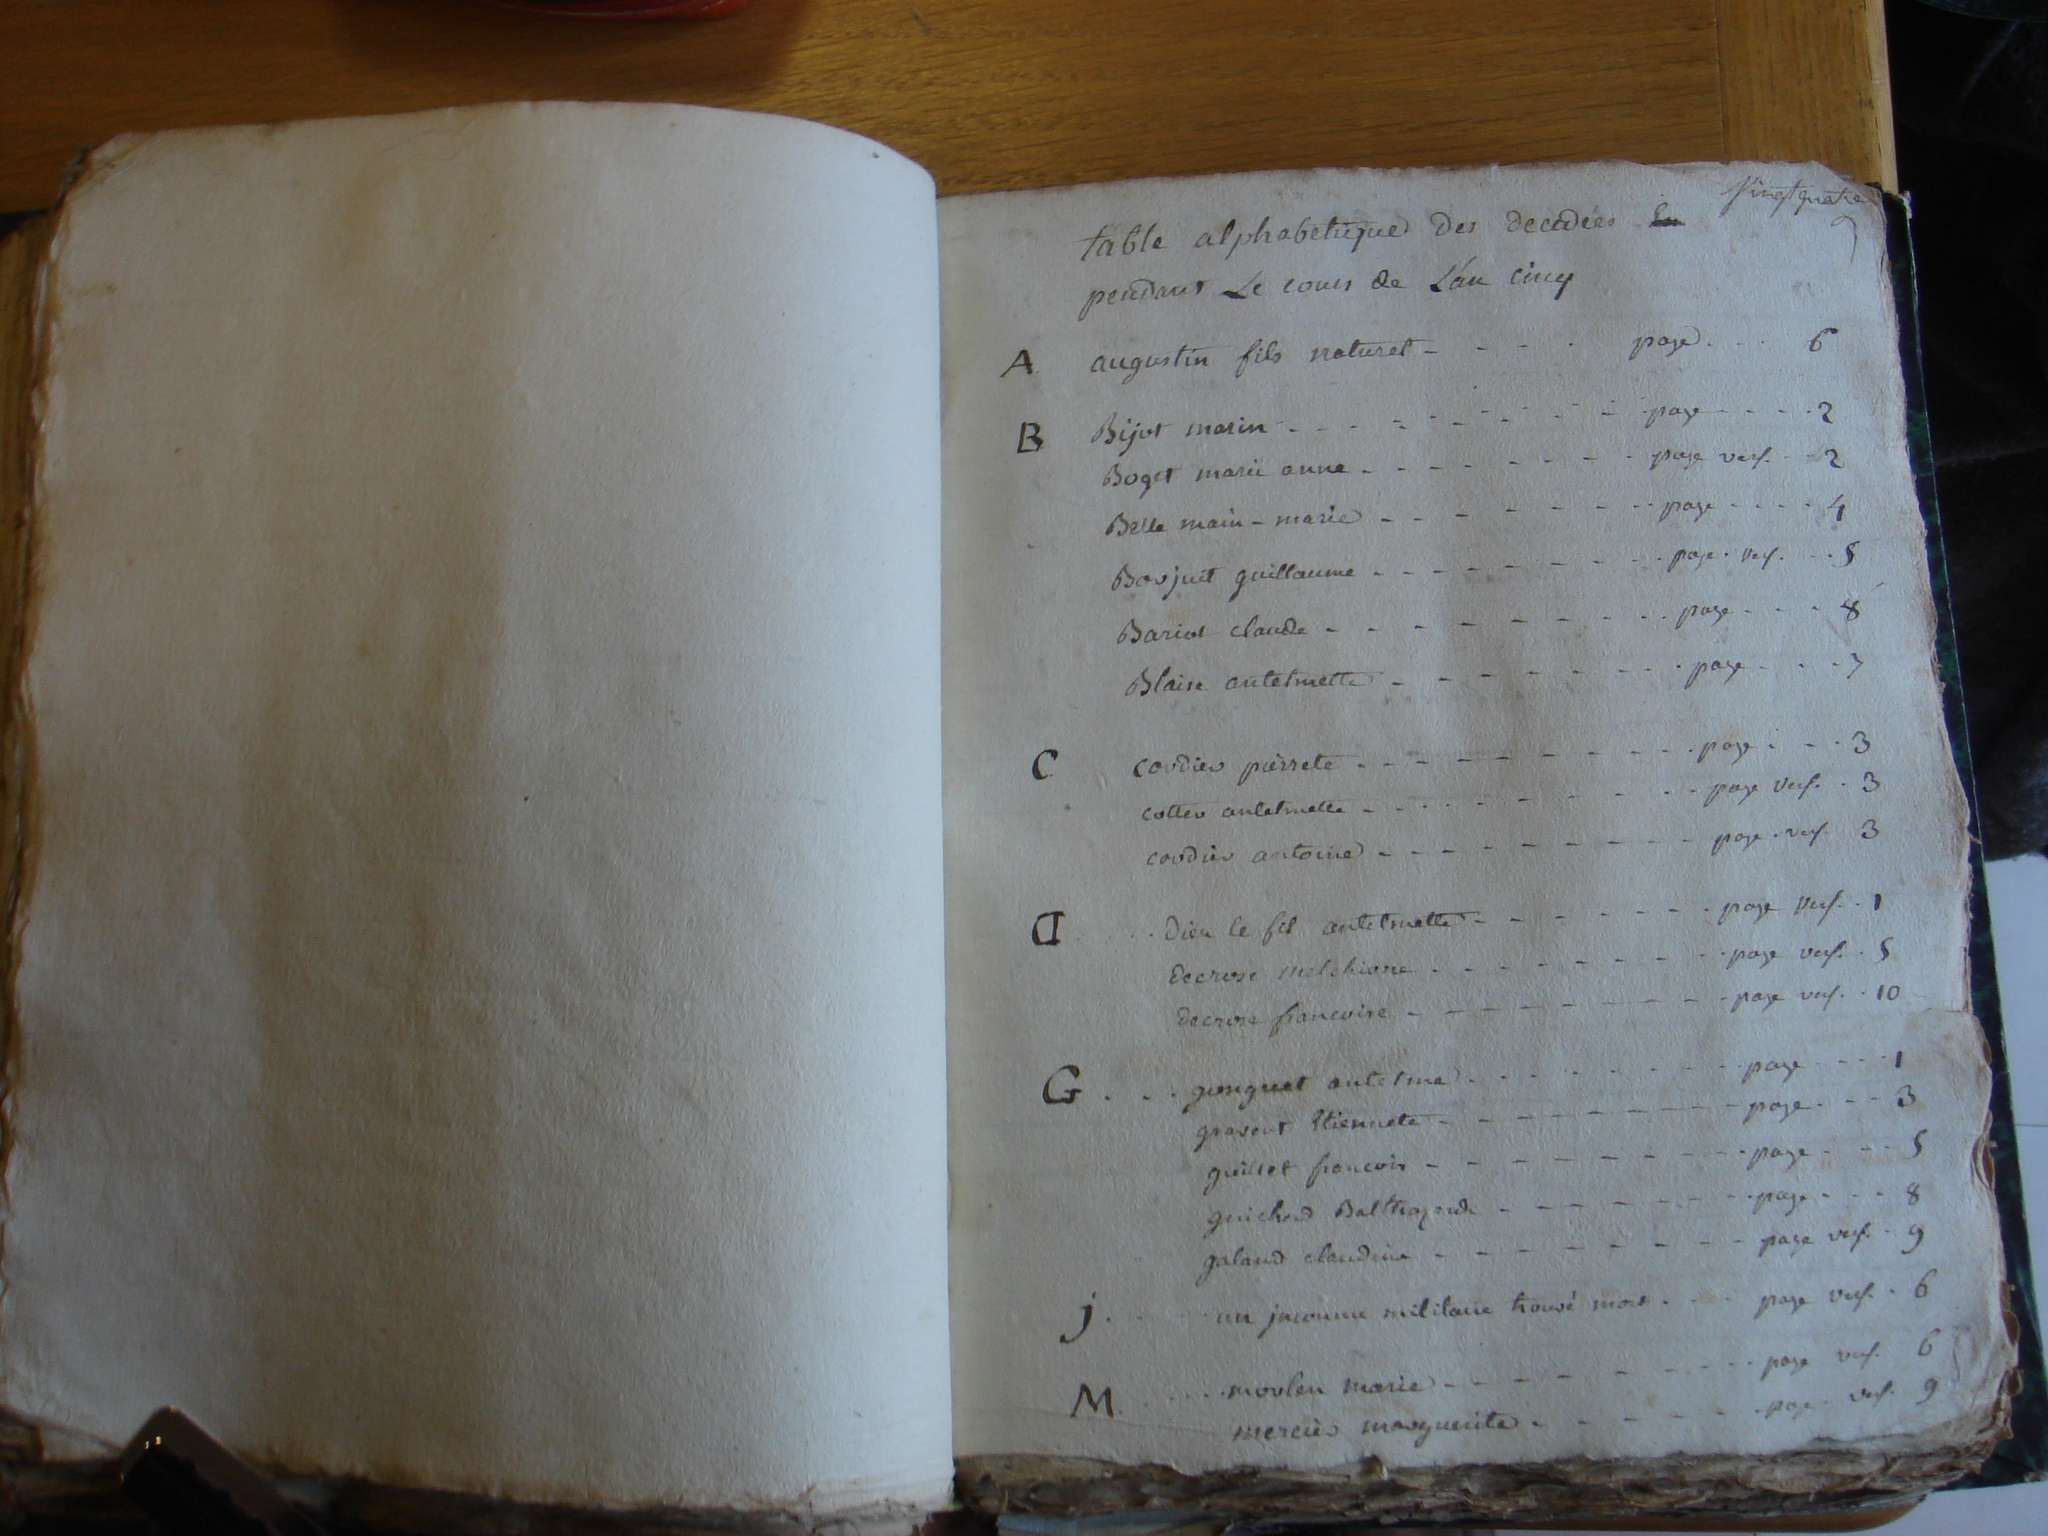 vingt quatre
table alphabetique des decédées
pendant Le cours de L'an cinq
A augustin fils naturel - - - - page . . . 6
B Bijot marin - - - - - - - - page - - - - 2
Boget marie anne - - - - - - - page vers. - - 2
Belle main - marie - - - - - - - page - - - - 4
Borjuit guillaume - - - - - - - page . vers. - - 5
Bariot claude - - - - - - - - page - - - 8
Blaise antelmette - - - - - - - page - - - 7
C cordier pierrete - - - - - - - - page . - - 3
cotter antelmette - - - - - - - - page vers. . 3
cordier antoine - - - - - - - - page . vers. 3
D . . . Dieu le fil antelmette - - - - - - page vers. . 1
decrose melchione - - - - - - - page vers. . 5
decrose francoise - - - - - - - page vers. . 10
G . . . gonguet antelme - - - - - - - page - - - - 1
gravent Etiennete - - - - - - - page . - - 3
guillet francois - - - - - - - - page - - - 5
guichard Balthazarde - - - - - - page . - - 8
galand claudine - - - - - - - page vers. - 9
j . . . un jnconnue militaire trouvé mort . - - page vers. . 6
M . . . . moulin marie - - - - - - - page vers. 6
mercier marguerite - - - - - - page . vers. 9